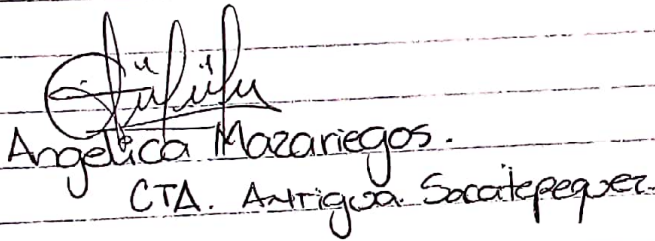 Angelica Mazariegos.
CTA. Antigua. Sacatepequez.